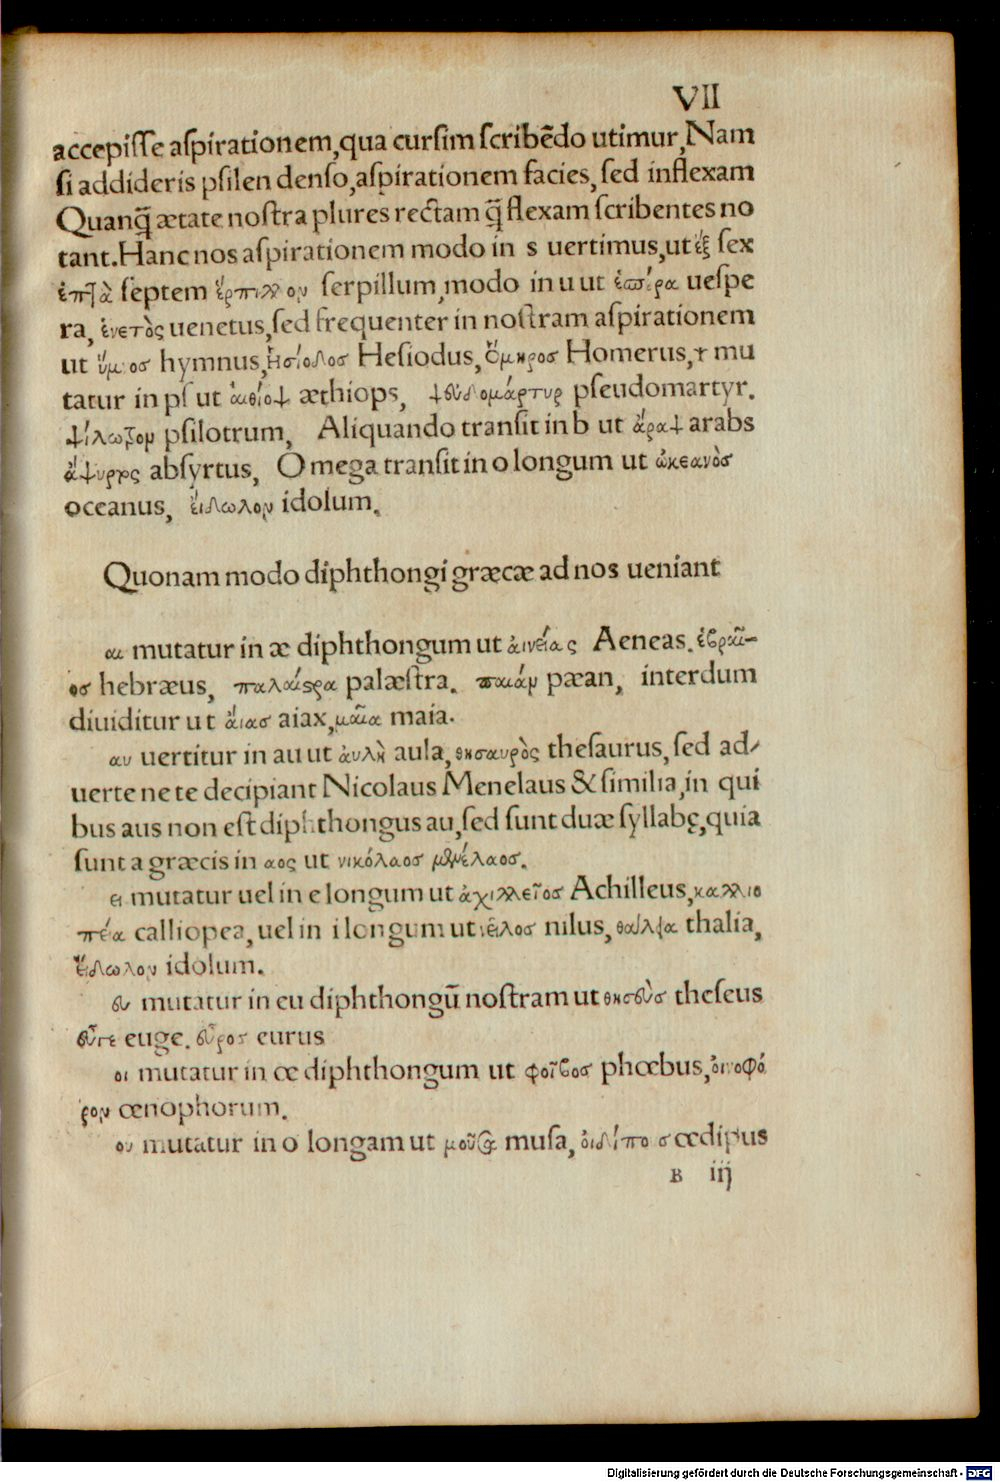 VII
accepiſſe aſpirationem, qua curſim ſcribēdo utimur, Nam
ſi addideris pſilen denſo, aſpirationem facies, ſed inflexam
Quanq̃ ætate noſtra plures rectam q̃ flexam ſcribentes no
tant. Hanc nos aſpirationem modo in s uertimus, ut ἕξ ſex
ἑπτὰ ſeptem ἕρπιλλον ſerpillum, modo in u ut ἑσπέρα ueſpe
ra, ἑνετὸς uenetus, ſed frequenter in noſtram aſpirationem
ut ὕμνοσ hymnus, ἡσίοδοσ Heſiodus, ὅμηροσ Homerus, ψ mu
tatur in pſ ut ἀιθίοψ æthiops, ψευδομάρτυρ pſeudomartyr.
ψίλωτρον pſilotrum, Aliquando tranſit in b ut ἄραψ arabs
ἄψυρτος abſyrtus, O mega tranſit in o longum ut ὠκεανὸσ
oceanus, ἔιδωλον idolum.
Quonam modo diphthongi græcæ ad nos ueniant
αι mutatur in æ diphthongum ut ἀινείας Aeneas. ἑβραῖ-
οσ hebræus, παλαίςρα palæſtra. παιάν pæan, interdum
diuiditur ut ἄιασ aiax, μαῖα maia.
αυ uertitur in au ut ἀυλὴ aula, θησαυρὸς theſaurus, ſed ad⸗
uerte ne te decipiant Nicolaus Menelaus & ſimilia, in qui
bus aus non eſt diphthongus au, ſed ſunt duæ ſyllabę, quia
ſunt a græcis in αος ut νικόλαοσ μενέλαοσ.
ει mutatur uel in e longum ut ἀχιλλεῖοσ Achilleus, καλλιο
πέα calliopea, uel in i longum ut νεῖλοσ nilus, θάλεια thalia,
ἔιδωλον idolum.
ευ mutatur in eu diphthongū noſtram ut θησεὺσ theſeus
εὖγε euge. εὖροσ eurus
οι mutatur in œ diphthongum ut φοῖβοσ phœbus, ὀινοφό
ρον œnophorum.
ου mutatur in o longam ut μοῦσα muſa, ὀιδίποσ œdipus
B iij
Digitalisierung gefördert durch die Deutsche Forschungsgemeinschaft - DFG